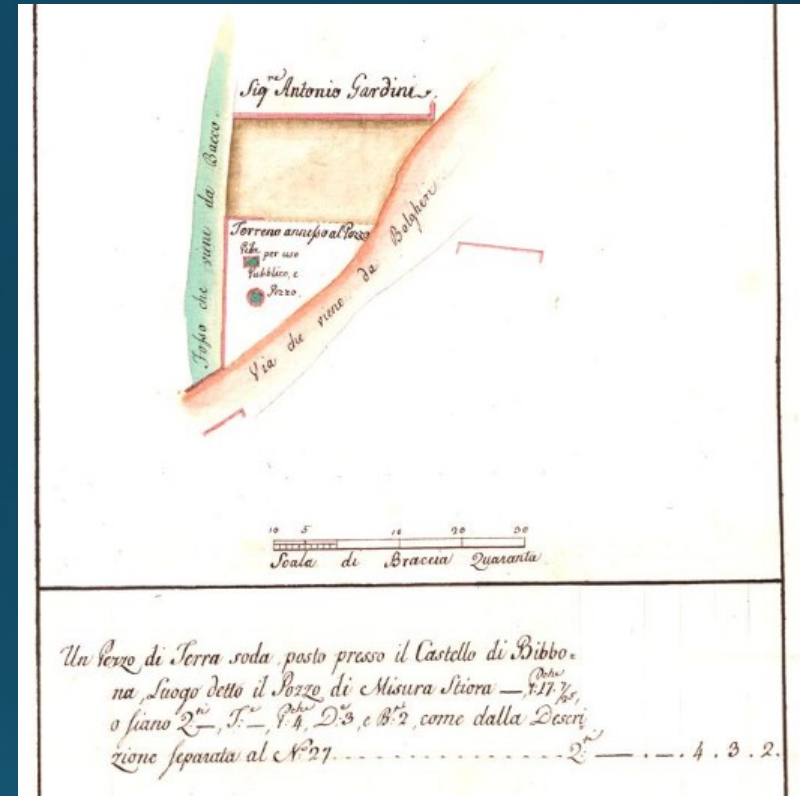 Sig.re Antonio Gardini.
Fosso che viene da Bacco.
Terreno annesso al Pozzo
Pile per uso
Pubblico, e
Pozzo.
Via che viene da Bolgheri
10 5 10 20 30
Scala di Braccia Quaranta
Un Pezzo di Terra soda, posto presso il Castello di Bibbo=
na, Luogo detto il Pozzo di Misura Stiora —, P.che 17. 7/25,
o siano Q.ti —, T.e —, P.che 4, D.i 3, e B.ia 2, come dalla Descri
zione separata al N.º 27 . . . . . . . . . . Q.ti — . — . 4 . 3 . 2 .